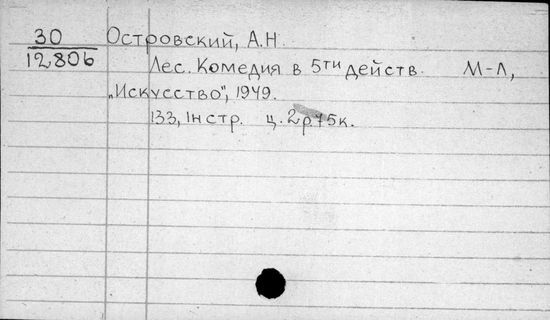 30 Островский, А.Н.
12806 Лес. Комедия в 5ти действ. М-Л,
„Искусство", 1949.
133, 1н стр. ц. 2р.75к.